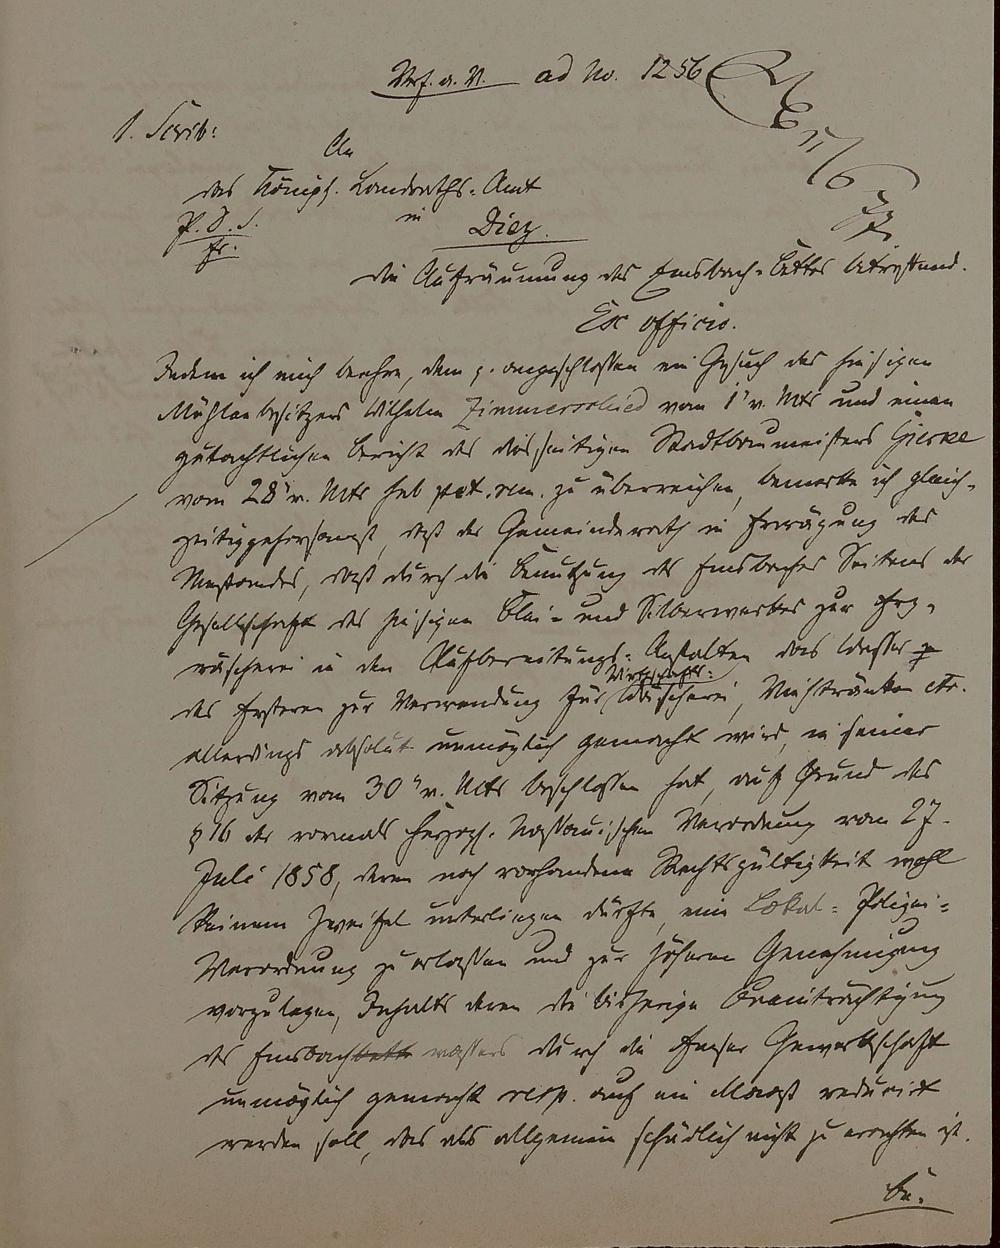 Urf. a. U. ad No. 1256
1. Scrib:
An
das Königl. Landraths-Amt
P. D. S. in Diez.
fr.
die Aufräumung des Emsbach-Bettes betreffend.
Ex officio.
Indem ich mich beehre, dem p. angeschlossen ein Gesuch des hiesigen
Mühlenbesitzers Wilhelm Zimmerschied vom 1' v. Mts und einen
gutachtlichen Bericht des diesseitigen Stadtbaumeisters
vom 28' v. Mts sub pet. rem. zu überreichen, bemerke ich gleich-
zeitig gehorsamst, daß der Gemeinderath in Erwägung des
Umstandes, daß durch die Benutzung des Emsbaches Seitens der
Gesellschaft des hiesigen Blei- und Silberwerkes zur Erz-
wäscherei in den Aufbereitungs-Anstalten das Wasser
des Ersteren zur Verwendung für Wirthschafts: Wäscherei, Viehtränken etc.
allerdings absolut unmöglich gemacht wird, in seiner
Sitzung vom 30' v. Mts beschlossen hat, auf Grund des
§ 16 der vormals Herzogl. Nassauischen Verordnung vom 27.
Juli 1858, deren noch vorhandene Rechtsgültigkeit wohl
keinem Zweifel unterliegen dürfte, eine Lokal-Polizei-
Verordnung zu erlassen und zur höheren Genehmigung
vorzulegen, Inhalts deren die bisherige Beeinträchtigung
des Emsbachbetts wassers durch die Emser Gewerkschaft
unmöglich gemacht resp. auf ein Maaß reducirt
werden soll, das als allgemein schädlich nicht zu erachten ist.